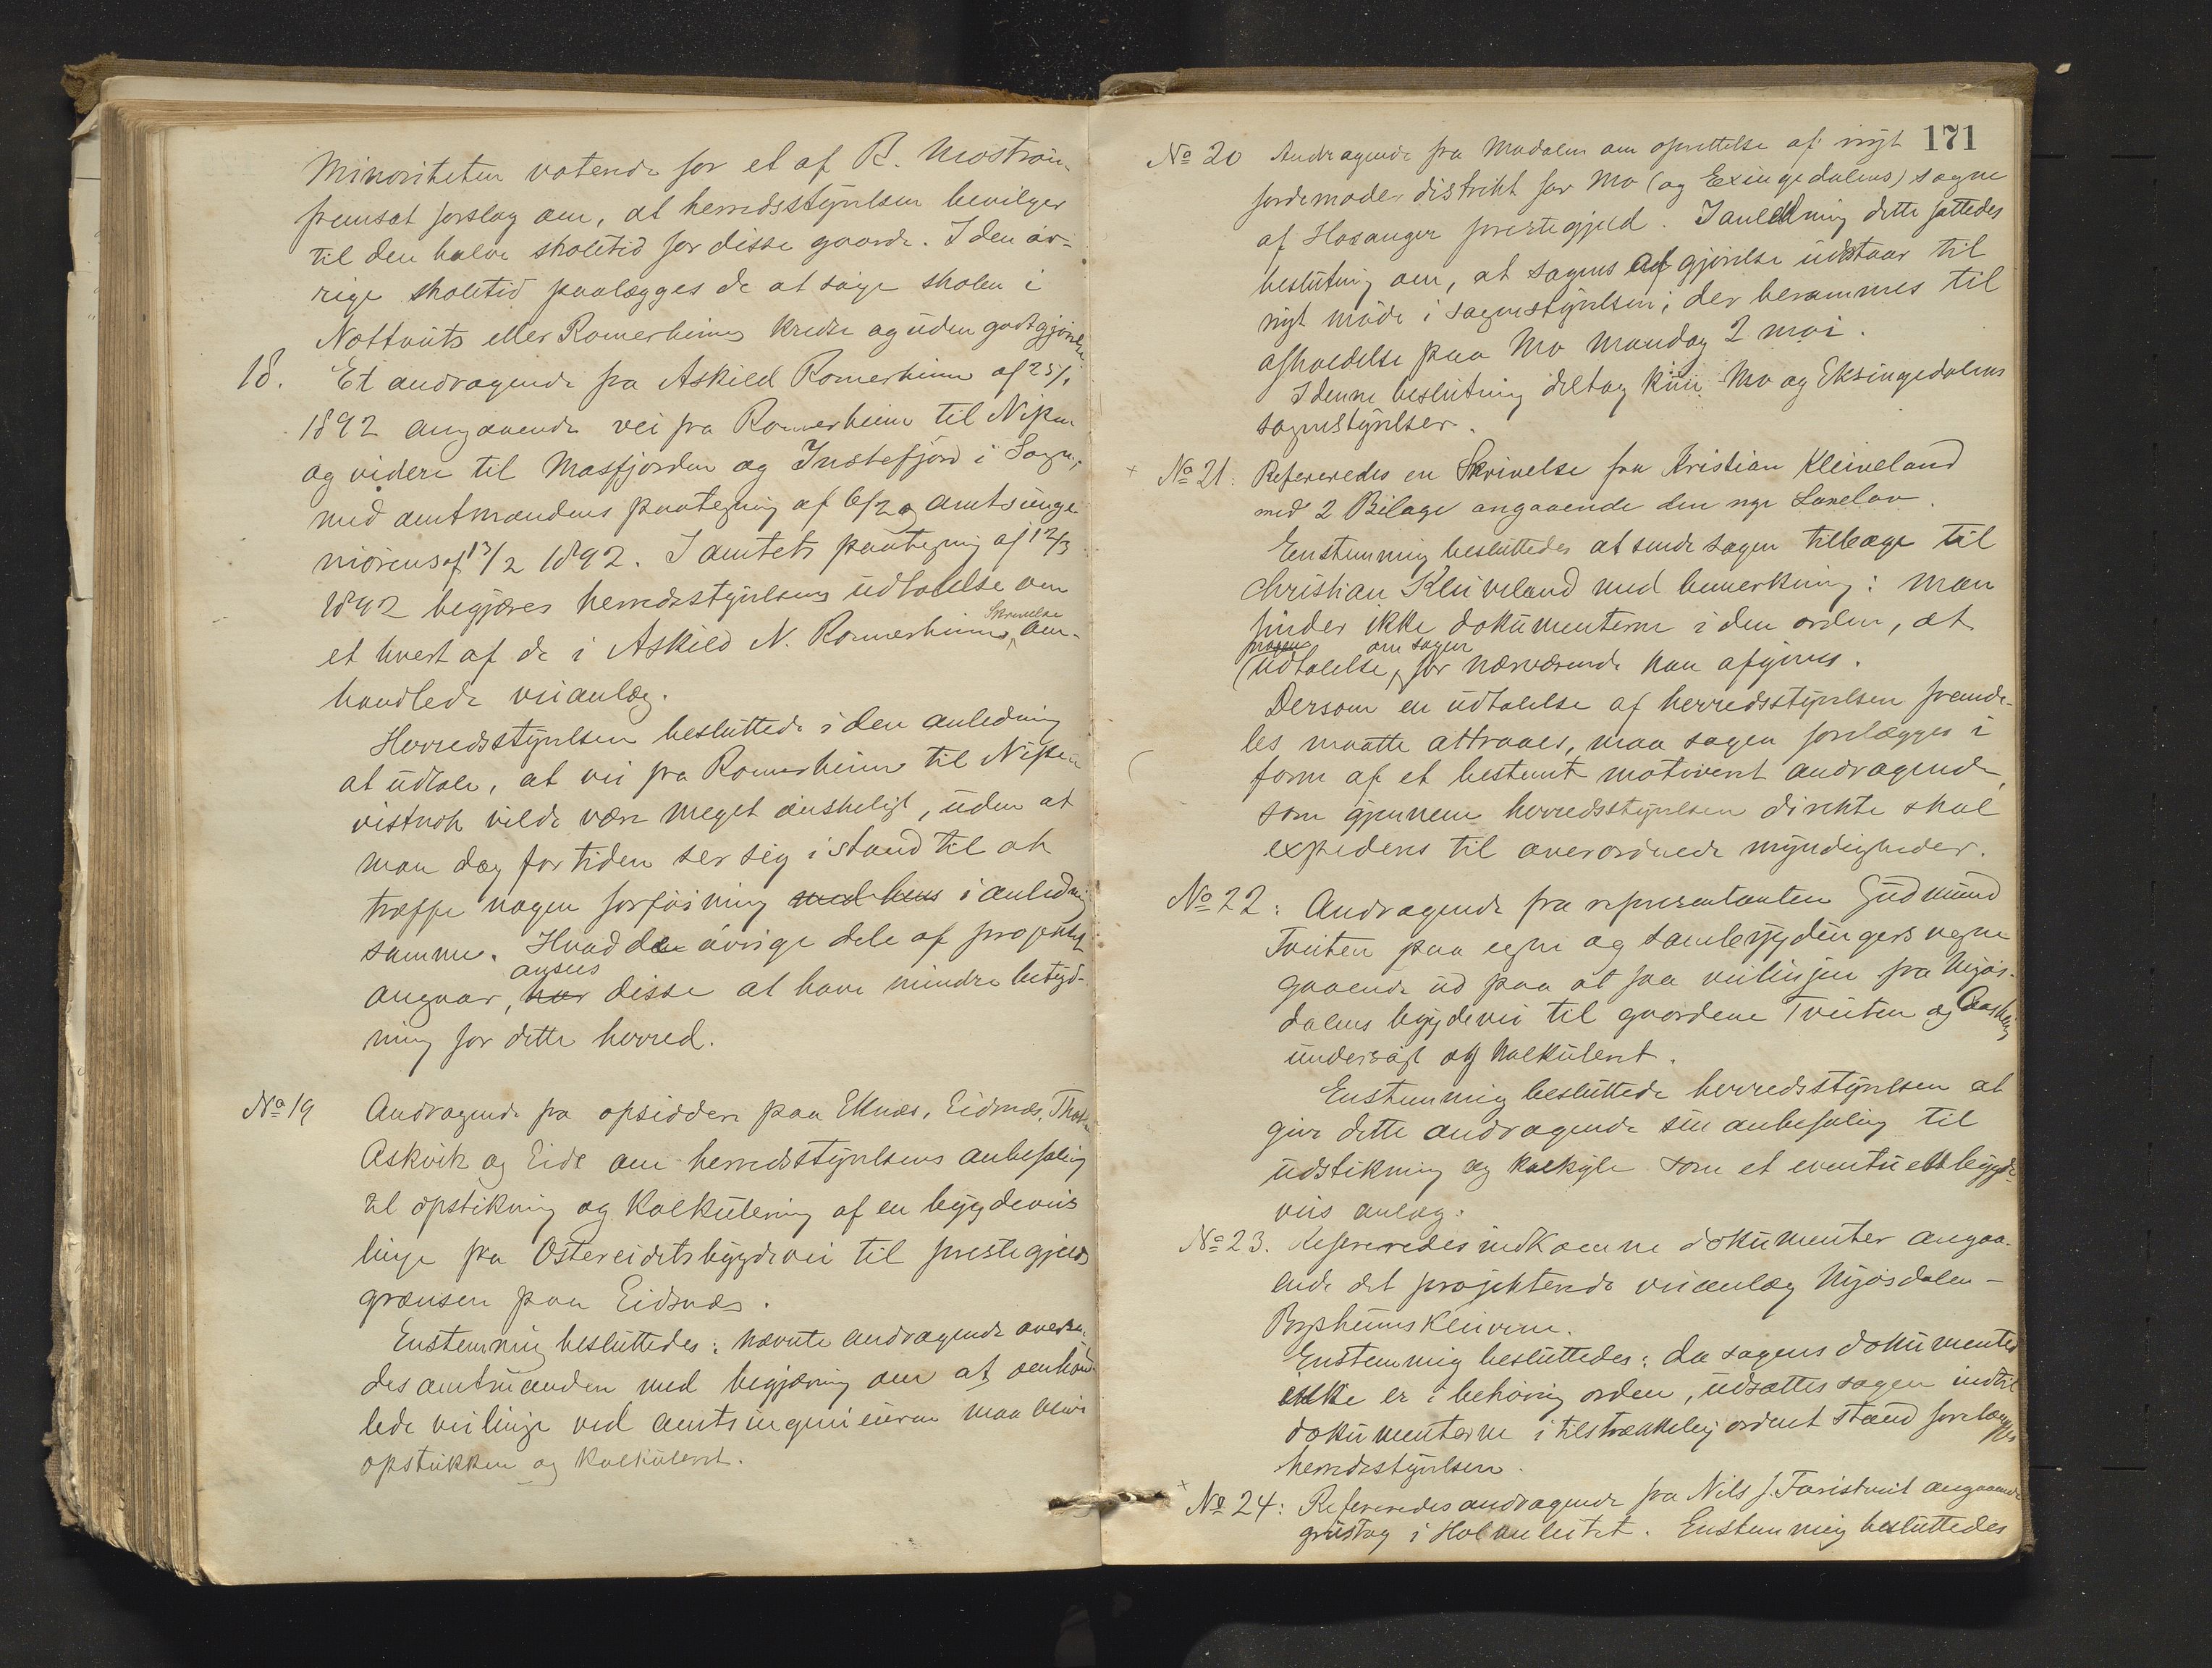 Minoriteten voterede for et af B. Mostrøm
fremsat forslag om, at herredsstyrelsen bevilger
til den halve skoletid for disse gaarde. I den øv-
rige skoletid paalægges de at søge skolen i
Nøttveits eller Romerheims kreds og uden godtgjørelse
18. Et andragende fra Askild Romerheim af 25/1
1892 angaaende vei fra Romerheim til Nipen
og videre til Masfjorden og Instefjord i Sogn,
med amtmandens paategning af 6/2 og amtsinge-
niørens af 13/2 1892. I amtets paategning af 12/3
1892 begjæres herredsstyrelsens udtalelse om
et hvert af de i Askild N. Romerheims Skrivelse om-
handlede veianlæg.
Herredsstyrelsen besluttede i den anledning
at udtale, at vei fra Romerheim til Nipen
vistnok vilde være meget ønskeligt, uden at
man dog for tiden ser sig istand til at
træffe nogen forføining med hens i anledning
samme. Hvad de øvrige dele af projektet
angaar, har ansees disse at have mindre betyd-
ning for dette herred.
No 19 Andragende fra opsiddere paa Eknæs, Eidsnæs,
Askvik og Eide om herredsstyrelsens anbefaling
til opstikning og kalkulering af en bygdeveis
linje fra Ostereidets bygdevei til prestegjelds
grænsen paa Eidsnæs.
Enstemmig besluttedes: nævnte andragende oversen-
des amtmanden med begjæring om at omhand-
lede veilinje ved amtsingeniøren maa blive
opstukken og kalkuleret.
171
No 20 Andragende fra Modalen om oprettelse af nyt
jordemoder distrikt for Mo (og Exingedalens) sogne
af Hosanger prestegjeld. I anledning dette fattedes
beslutning om, at sagens afgjørelse udstaar til
nyt møde i sognestyrelsen; der berammes til
afholdelse paa Mo mandag 2 mai.
I denne beslutning deltog kun Mo og Eksingedalens
sognestyrelser.
+ No 21: Refereredes en Skrivelse fra Kristian Kleiveland
med 2 Bilage angaaende den nye Laxelov.
Enstemmig besluttedes at sende sagen tilbage til
Christian Kleiveland med bemerkning: man
finder ikke dokumenterne i den orden, at
udtalelse om sagen for nærværende kan afgives.
Dersom en udtalelse af herredsstyrelsen fremde-
les maatte attraaes, maa sagen forelægges i
form af et bestemt motiveret andragende,
som gjennem herredsstyrelsen direkte skal
expederes til overordnede myndigheder.
No 22: Andragende fra representanten Gudmund
Tveiten paa egne og sambygdingers vegne
gaaende ud paa at faa veilinjen fra Mjøs-
dalens bygdevei til gaardene Tveiten og
undersøgt og kalkuleret.
Enstemmig besluttede herredsstyrelsen at
give dette andragende sin anbefaling til
udstikning og kalkyle som et eventuelt bygde-
veis anlæg.
No 23. Refereredes indkomne dokumenter angaa-
ende det projekterede veianlæg Mjøsdalen -
Enstemmig besluttedes: da sagens dokumenter
ikke er i behørig orden, udsættes sagen indtil
dokumenterne i tilstrækkelig ordnet stand forelægges
herredsstyrelsen.
+ No 24: Refereredes andragende fra Nils J. angaaende
grustag i. Enstemmig besluttedes